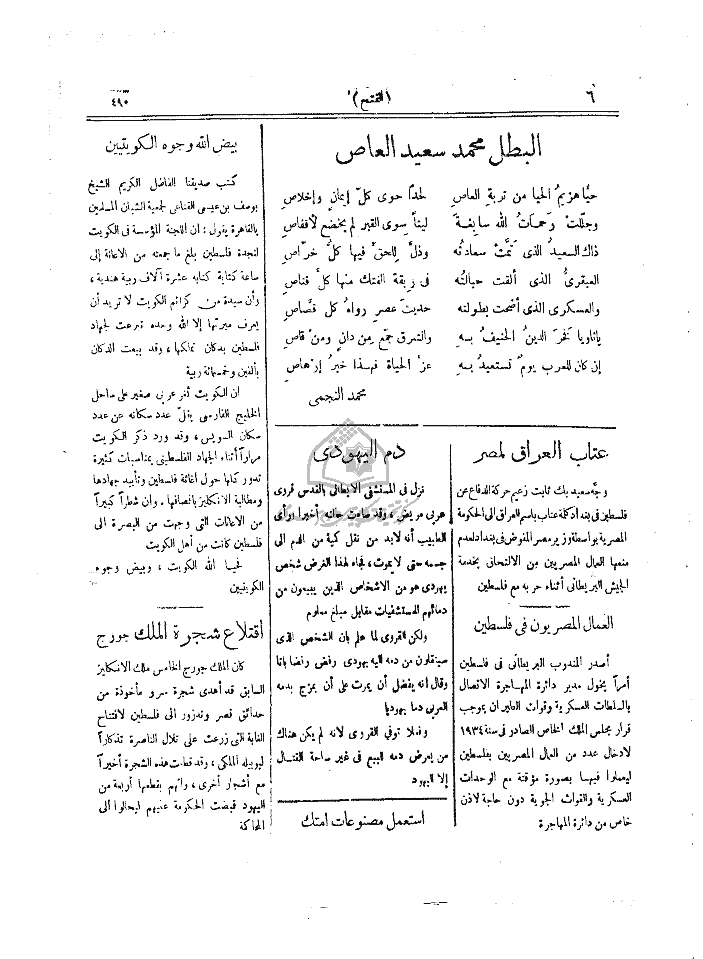 ٦
(الفتح)
٤٩٠
البطل محمد سعيد العاص
حيَّا هزيمُ الحيا من تربةِ العاص
لحداً حوى كلَّ إيمانٍ وإخلاصِ
وجللتْ رحماتُ الله سابغةً
ليثاً سوى القبر لم يخضع لأقفاصِ
ذاك السعيدُ الذى تمَّتْ سعادتُه
وذلَّ للحقّ فيها كلُّ خرَّاصِ
العبقرىُّ الذى ألقت حبالتُه
فى ربقة الفتك منها كلَّ قناصِ
والعسكرى الذى أضحت بطولته
حديثَ عصرٍ رواهُ كل قصَّاصِ
ياثاويا فخرَ الدينُ الحنيفُ به
والشرق جمّع من دانٍ ومنْ قاصِ
إن كان للعرب يومٌ تستعيدُ به
عزَّ الحياة فهذا خيرُ إرهاصِ
محمد النجمى
عتاب العراق لمصر
وجَّه سعيد بك ثابت زعيم حركة الدفاع عن
فلسطين فى بغداد كلمة عتاب باسم العراق الى الحكومة
المصرية بواسطة وزير مصر المفوض فى بغداد لعدم
منعها العمال المصريين من الالتحاق بخدمة
الجيش البريطانى أثناء حربه مع فلسطين
العمال المصريون فى فلسطين
أصدر المندوب البريطانى فى فلسطين
أمراً يخول مدير دائرة المهاجرة الاتصال
بالسلطات العسكرية وقوات الطيران بموجب
قرار مجلس الملك الخاص الصادر فى سنة ١٩٣٤
لادخال عدد من العمال المصريين بفلسطين
ليعملوا فيها بصورة مؤقتة مع الوحدات
العسكرية والقوات الجوية دون حاجة لاذن
خاص من دائرة المهاجرة
دم اليهودى
نزل فى المستشفى الايطالى بالقدس قروى
عربى مريض، وقد ساءت حاله أخيرا ورأى
الطبيب أنه لابد من نقل كمية من الدم الى
جسمه حتى لا يموت، فجاء لهذا الغرض شخص
يهودى هو من الاشخاص الذين يبيعون من
دمائهم للمستشفيات مقابل مبلغ معلوم
ولكن القروى لما علم بان الشخص الذى
سينقلون من دمه اليه يهودى رفض رفضا باتا
وقال انه يفضل أن يموت على أن يمزج بدمه
العربى دما يهوديا
وفعلا توفى القروى لانه لم يكن هناك
من يعرض دمه للبيع فى غير ساحة القتال
إلا اليهود
استعمل مصنوعات امتك
بيض الله وجوه الكويتيين
كتب صديقنا الفاضل الكريم الشيخ
يوسف بن عيسى القناعى لجمعية الشبان المسلمين
بالقاهرة يقول: ان اللجنة المؤسسة فى الكويت
لنجدة فلسطين بلغ ما جمعته من الاعانة إلى
ساعة كتابة كتابه عشرة آلاف ربية هندية،
وأن سيدة من كرائم الكويت لا تريد أن
يعرف مبرتها إلا الله وحده تبرعت لجهاد
فلسطين بدكان تملكها، وقد بيعت الدكان
بألفين وخمسمائة ربية
ان الكويت ثغر عربى صغير على ساحل
الخليج الفارسى يقلّ عدد سكانه عن عدد
سكان السويس، وقد ورد ذكر الكويت
مراراً أثناء الجهاد الفلسطينى بمناسبات كثيرة
تدور كلها حول اغاثة فلسطين وتأييد جهادها
ومطالبة الانكليز بانصافها. وان شطراً كبيراً
من الاعانات التى وجهت من البصرة الى
فلسطين كانت من أهل الكويت
فحيا الله الكويت، وبيض وجوه
الكويتيين
اقتلاع شجرة الملك جورج
كان الملك جورج الخامس ملك الانكليز
السابق قد أهدى شجرة سرو مأخوذة من
حدائق قصر وندزور الى فلسطين لافتتاح
الغابة التى زرعت على تلال الناصرة تذكاراً
ليوبيله الملكى، وقد قطعت هذه الشجرة أخيراً
مع أشجار أخرى، واتهم بقطعها أربعة من
اليهود قبضت الحكومة عليهم ليحالوا الى
المحاكمة